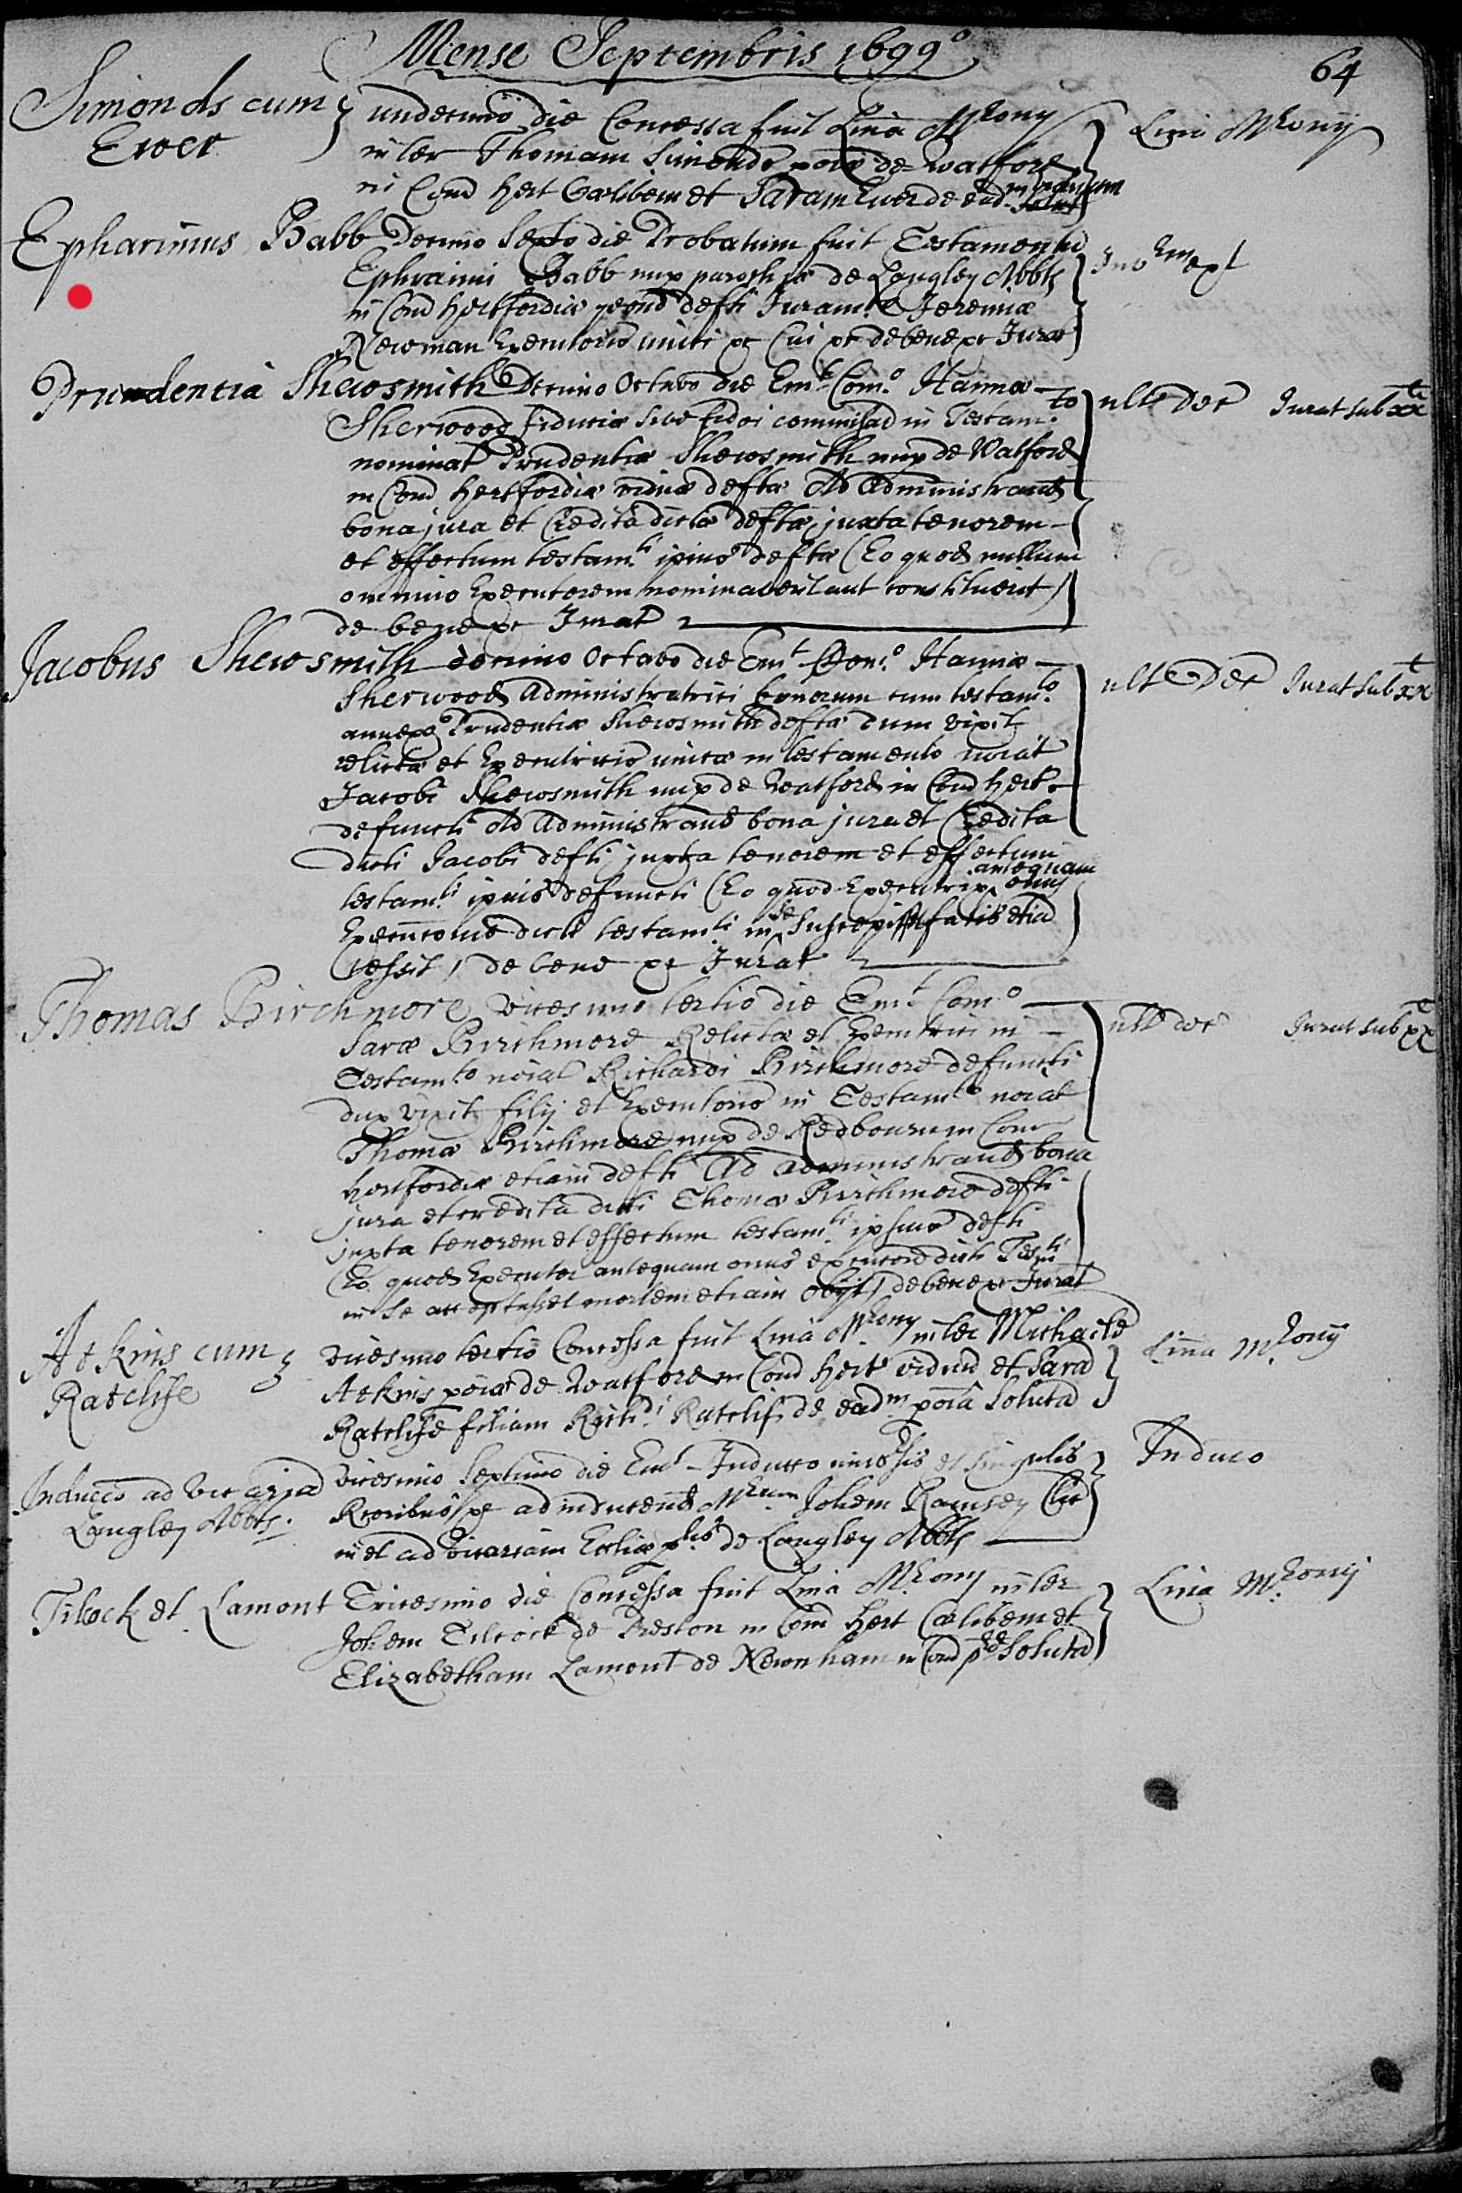 Mense Septembris 1699o
64
Simonds cum
Ewer
undecimo die Concessa fuit Lina Mriony
inter Thomam Simonds de Watford
in Com Hert Cælibem et Saram Ewer de ead
Lina Mriony
Epharimus Babb Decimo Sexto die Probatum fuit Testamentu
Ephraimi Babb nup parochiæ de Langley Abbts
in Com Hertfordiæ defti Juramto Jeremiæ
Newman Executoris unici &c Cui &c de bene &c Jurat
Prudentia Shewsmith Decimo Octavo die Emt Como Hannæ
Sherwood fiduciæ sive fidei commissad in Testamto
nominat Prudentiæ Shewsmith nup de Watford
in Com Hertfordiæ viduæ deftæ Ad Administrand
bona jura et Credita dictæ deftæ juxta tenorem
et effectum testamti ipius deftæ (Eo quod nullum
omnino Executorem nominaverit aut constituerit)
de bene &c Jurat
ult Dec Jurat sub xxt
Jacobus Shewsmith decimo Octavo die Emt Como Hannæ
Sherwood Administratrici bonorum cum testamto
annexo Prudentiæ Shewsmith deftæ dum vixit
relictæ et Executricis unicæ in testamento noiat
Jacobi Shewsmith nup de Watford in Com Hert
defuncti Ad Administrand bona jura et Credita
dicti Jacobi defti juxta tenorem et effectum
testamti ipius defuncti (Eo quod Executrix antequam onus
Executionis dicti testamti in se suscepisset fatis etia
Cessit) de bene &c Jurat
ult Dec Jurat sub xxt
Thomas Birchmore vicesimo tertio die Emt Como
Saræ Birchmore Relictæ et Executrici in
Testamto noiat Richardi Birchmore defuncti
dum vixit filij et Executoris in Testamto noiat
Thomæ Birchmore nup de Redbourn in Com
Hertfordiæ etiam defti Ad Administrand bona
jura et credita dicti Thomæ Birchmore defti
juxta tenorem et effectum testamti ipsius defti
(Eo quod Executor antequam onus dicti Testi
in se acceptasset mortem etiam obijt) de bene &c Jurat
ult dec Jurat sub xxt
Atkins cum
Ratclife
vicesimo tertio Concessa fuit Lina Mriony inter Michaele
Atkins de Watford in Com Hert viduu et Sara
Ratclife filiam Richdi Ratclif de eadm poia Soluta
Linа Mriony
Inducco ad Vicaria
Langley Abbts.
vicesimo Septimo die Emt Inducco universis et singulis
Rectoribus &c ad inducend Mrum Johem Ramsey Clic
in et ad vicariam Ecclie de Langley Abbts
Induco
Tilcock et Lamont Tricesimo die Concessa fuit Lina Mriony inter
Johem Tilcock de Preston in Com Hert Cælibem et
Elizabetham Lamont de Newnham in Com Soluta
Lina Mriony